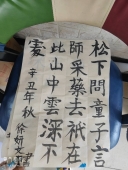 松下問童子言
師采藥去祇在
此山中雲深不
處
辛丑年秋
徐妍文